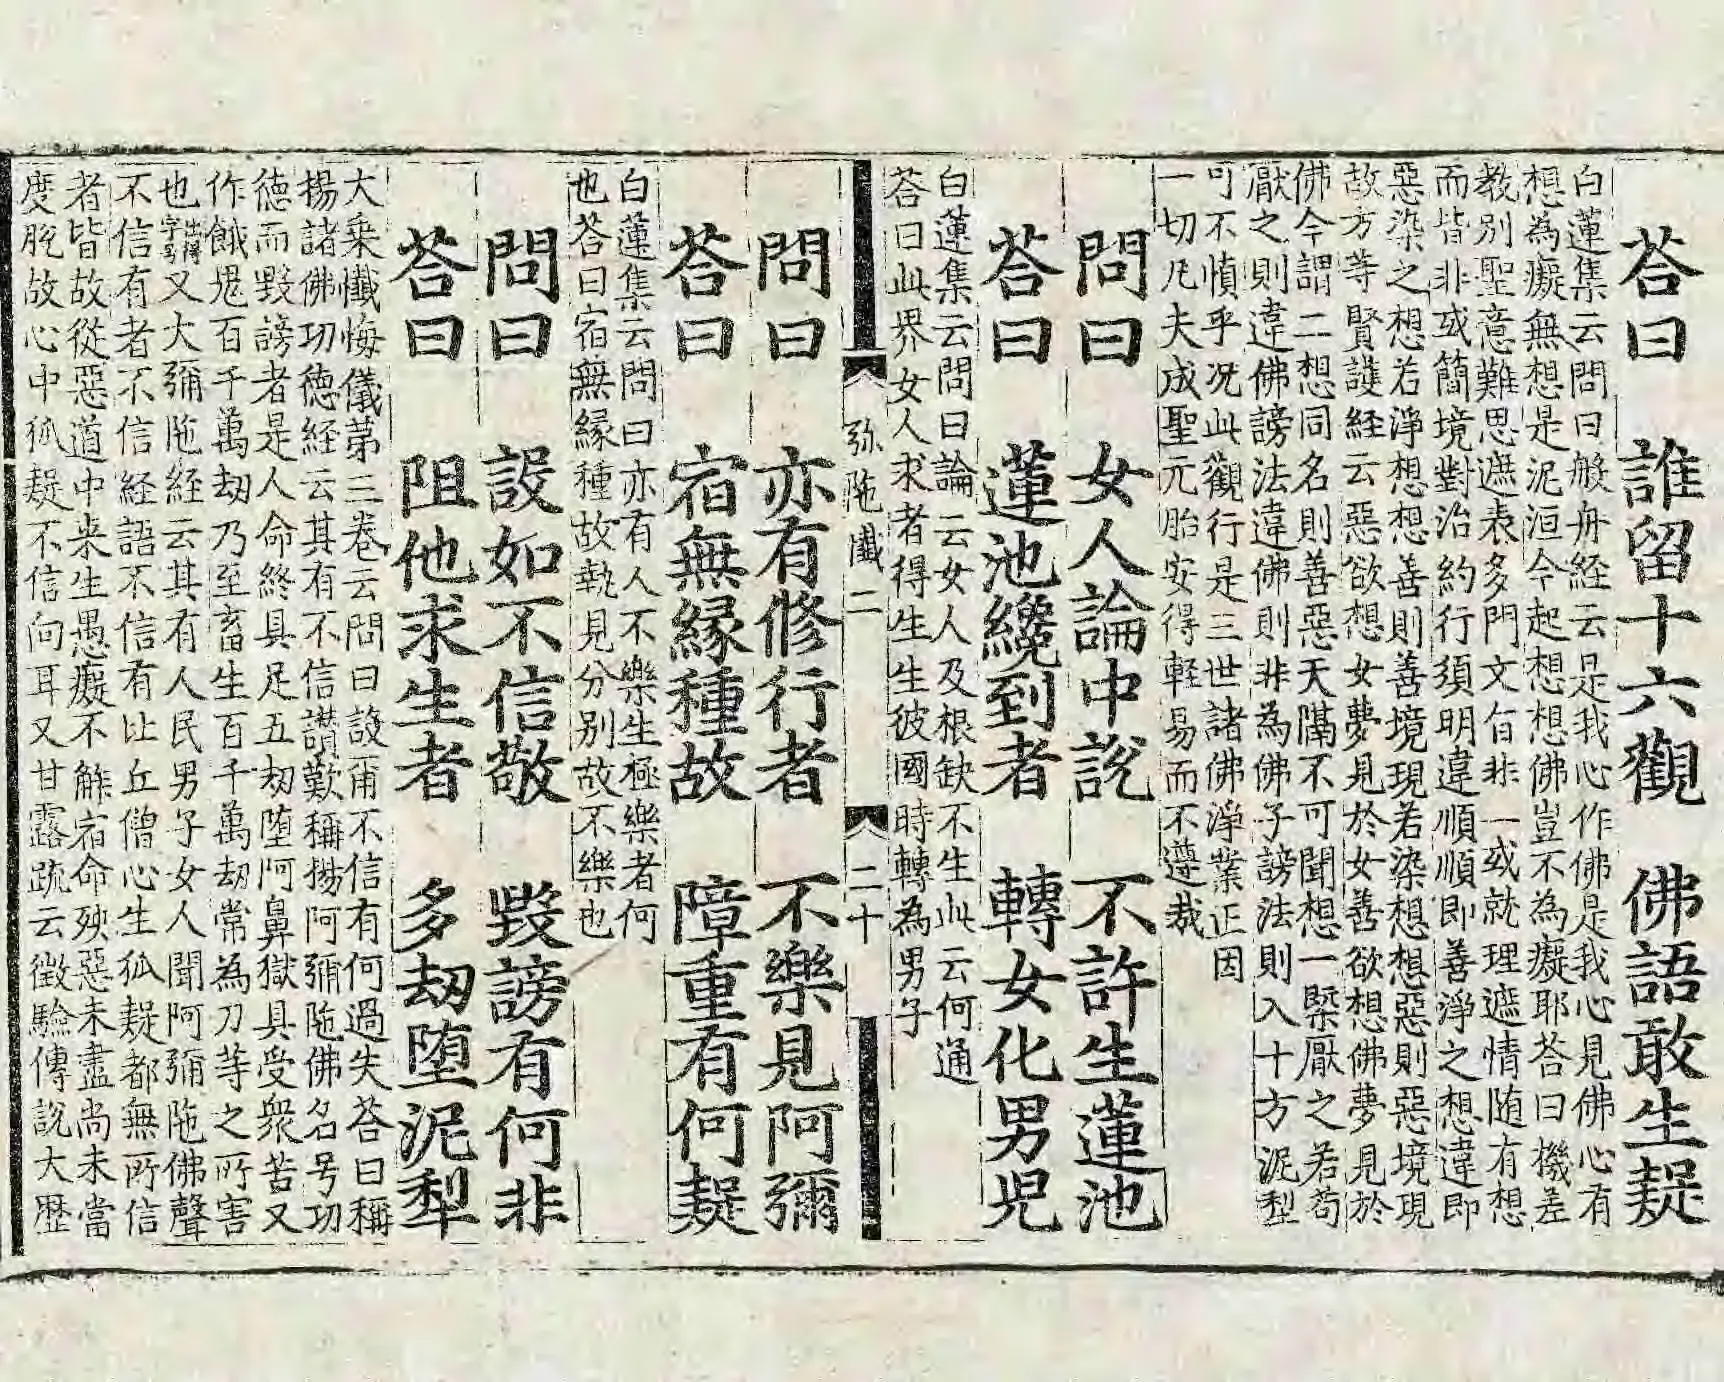 荅曰 誰留十六觀 佛語敢生疑
白蓮集云問曰般舟経云是我心作佛是我心見佛心有
想為癡無想是泥洹今起想想佛豈不為癡耶荅曰機差
教別聖意難思遮表多門文旨非一或就理遮情随有想
而皆非或簡境對治約行須明違順順即善淨之想違即
惡染之想若淨想想善則善境現若染想想惡則惡境現
故方等賢護経云惡欲想女夢見於女善欲想佛夢見於
佛今謂二想同名則善惡天隔不可聞想一槩厭之若苟
厭之則違佛謗法違佛則非為佛子謗法則入十方泥犁
可不慎乎况此觀行是三世諸佛淨業正因
一切凡夫成聖元胎安得軽易而不遵哉
問曰 女人論中說 不許生蓮池
荅曰 蓮池纔到者 轉女化男児
白蓮集云問曰論云女人及根缺不生此云何通
荅曰此界女人求者得生生彼國時轉為男子
弥陁懺二 二十
問曰 亦有修行者 不樂見阿彌
荅曰 宿無緣種故 障重有何疑
白蓮集云問曰亦有人不樂生極樂者何
也荅曰宿無緣種故執見分別故不樂也
問曰 設如不信敬 毀謗有何非
荅曰 阻他求生者 多劫堕泥犁
大乗懺悔儀第三卷云問曰設爾不信有何過失荅曰稱
揚諸佛功德経云其有不信讃歎稱揚阿彌陁佛名号功
德而毀謗者是人命終具足五劫堕阿鼻獄具受衆苦又
作餓鬼百千萬劫乃至畜生百千萬劫常為刀等之所害
也出擇字号又大彌陁経云其有人民男子女人聞阿彌陁佛聲
不信有者不信経語不信有比丘僧心生狐疑都無所信
者皆故從惡道中来生愚癡不觧宿命殃惡未盡尚未當
度脫故心中狐疑不信向耳又甘露疏云徵驗傳說大歷